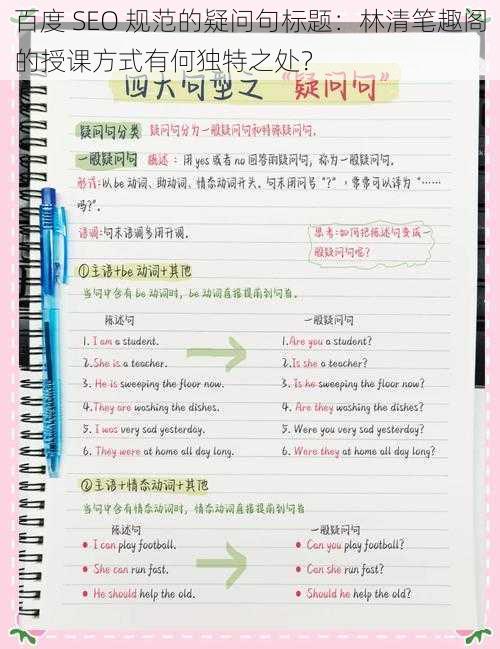 百度 SEO 规范的疑问句标题：林清笔趣阁
的授课方式有何独特之处？
四大句型之 “疑问句”
疑问句分类 疑问句分为一般疑问句和特殊疑问句.
一般疑问句 概述：用 yes 或者 no 回答的疑问句，称为一般疑问句.
形式：以 be 动词、助动词、情态动词开头. 句末用问号“？”，常常可以译为“……
吗？”.
语调：句末语调多用升调.
思考：如何把陈述句变成一
般疑问句呢？
①主语+be 动词+其他
当句中含有 be 动词时，be 动词直接提前到句首.
陈述句 一般疑问句
1. I am a student. 1.Are you a student?
2.She is a teacher. 2.Is she a teacher?
3. He is sweeping the floor now. 3. Is he sweeping the floor now?
4.They are washing the dishes. 4. Are they washing the dishes?
5. I was very sad yesterday. 5. Were you very sad yesterday?
6. They were at home all day long. 6. Were they at home all day long?
②主语+情态动词+其他
当句中含有情态动词时，情态动词直接提前到句首
陈述句 一般疑问句
• I can play football. • Can you play football?
• She can run fast. • Can she run fast?
• He should help the old. • Should he help the old?